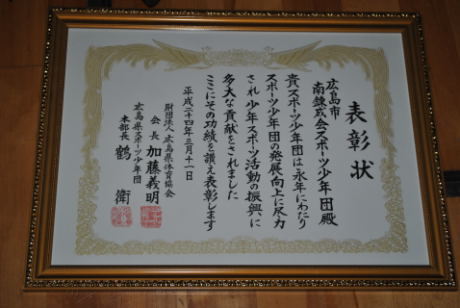 表彰状
広島市
南錬成会スポーツ少年団殿
貴スポーツ少年団は永年にわたり
スポーツ少年団の発展向上に尽力
され少年スポーツ活動の振興に
多大な貢献をされました
ここにその功績を讃え表彰します
平成二十四年三月十一日
財団法人広島県体育協会
会長 加藤義明
広島県スポーツ少年団
本部長 鶴 衛